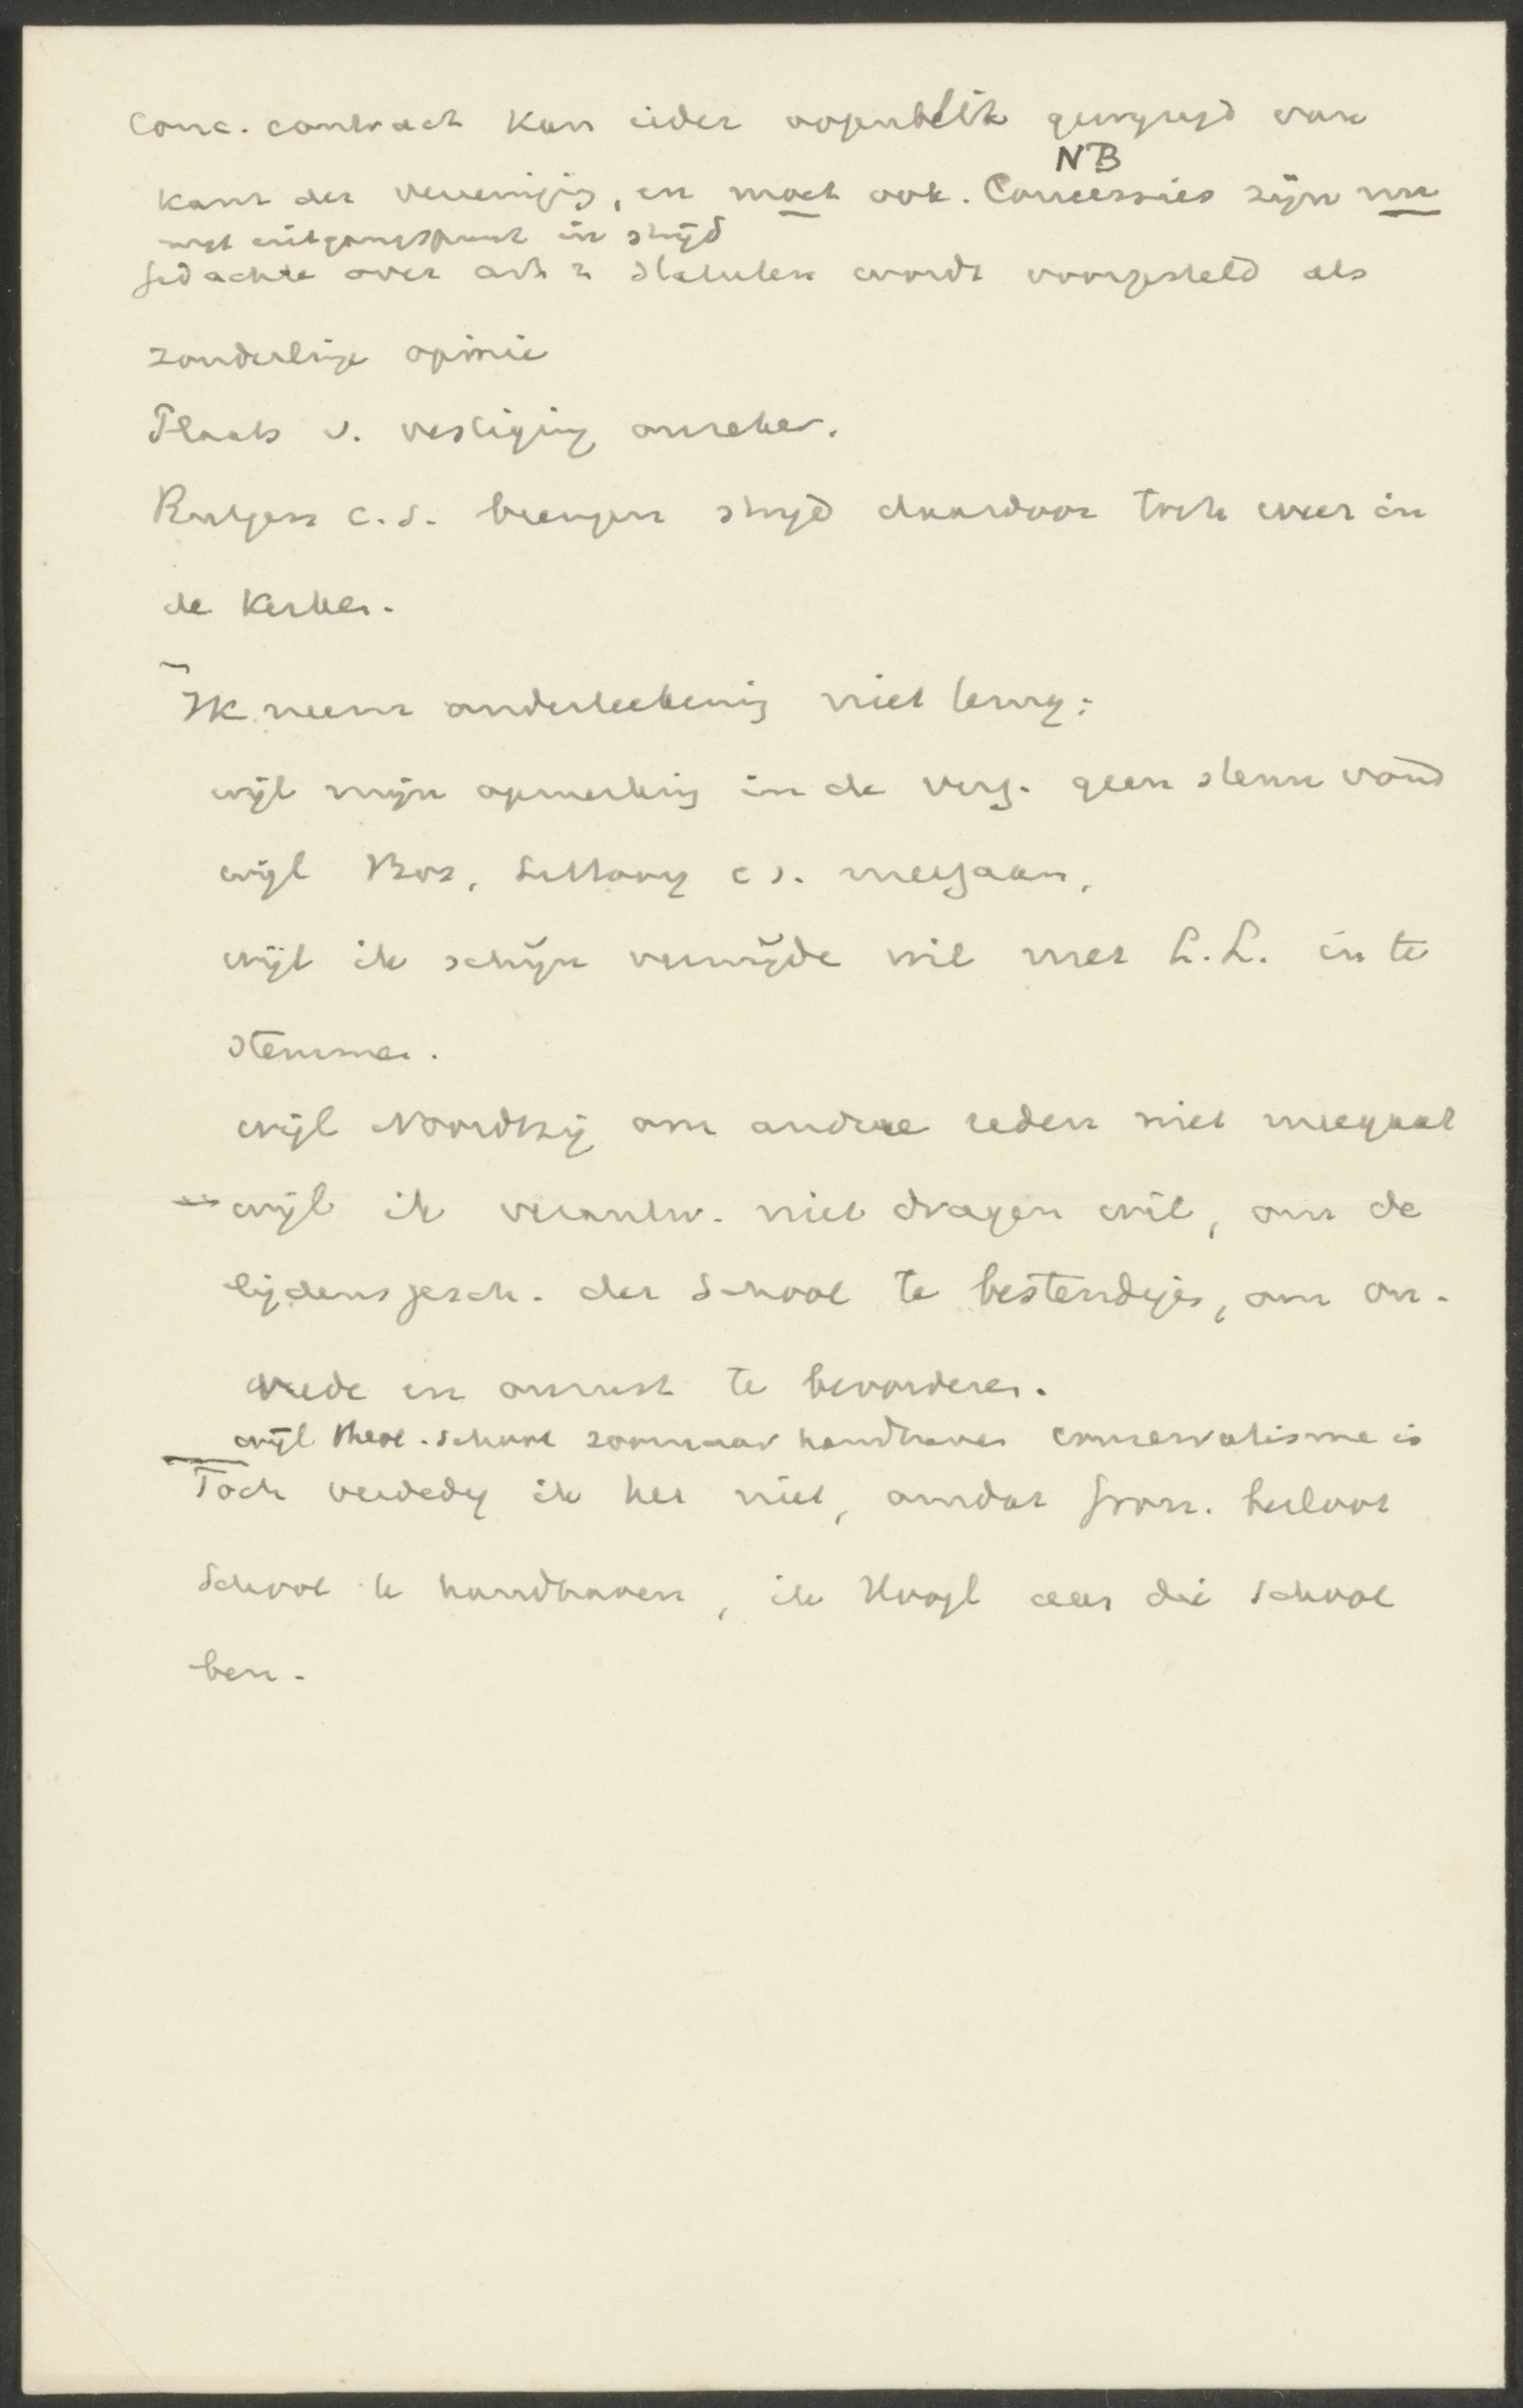 Conc. contract kan ieder oogenblik gewijzigd van
NB
kant der vereeniging, en mocht ook. Concessies zijn nu
met uitgangspunt in strijd
Gedachte over art 2 Statuten wordt voorgesteld als
zonderlinge opinie
Plaats v. vestiging onzeker.
Rutgers c.s. brengen strijd daardoor toch weer in
de Kerken.
Ik neem onderteekening niet terug:
wijl mijn opmerking in de verg. geen steun vond
wijl Bos, Littooy c.s. meegaan,
wijl ik schijn vermijden wil met L.L. in te
stemmen.
wijl Noordtzij om andere reden niet meegaat
wijl ik verantw. niet dragen wil, om de
lijdensgesch. der School te bestendigen, om on-
vrede en onrust te bevorderen.
wijl Theol. School zoomaar handhaven conservatisme is
Toch verdedig ik het niet, omdat Gron. besloot
School te handhaven, ik Hoogl aan die School
ben.